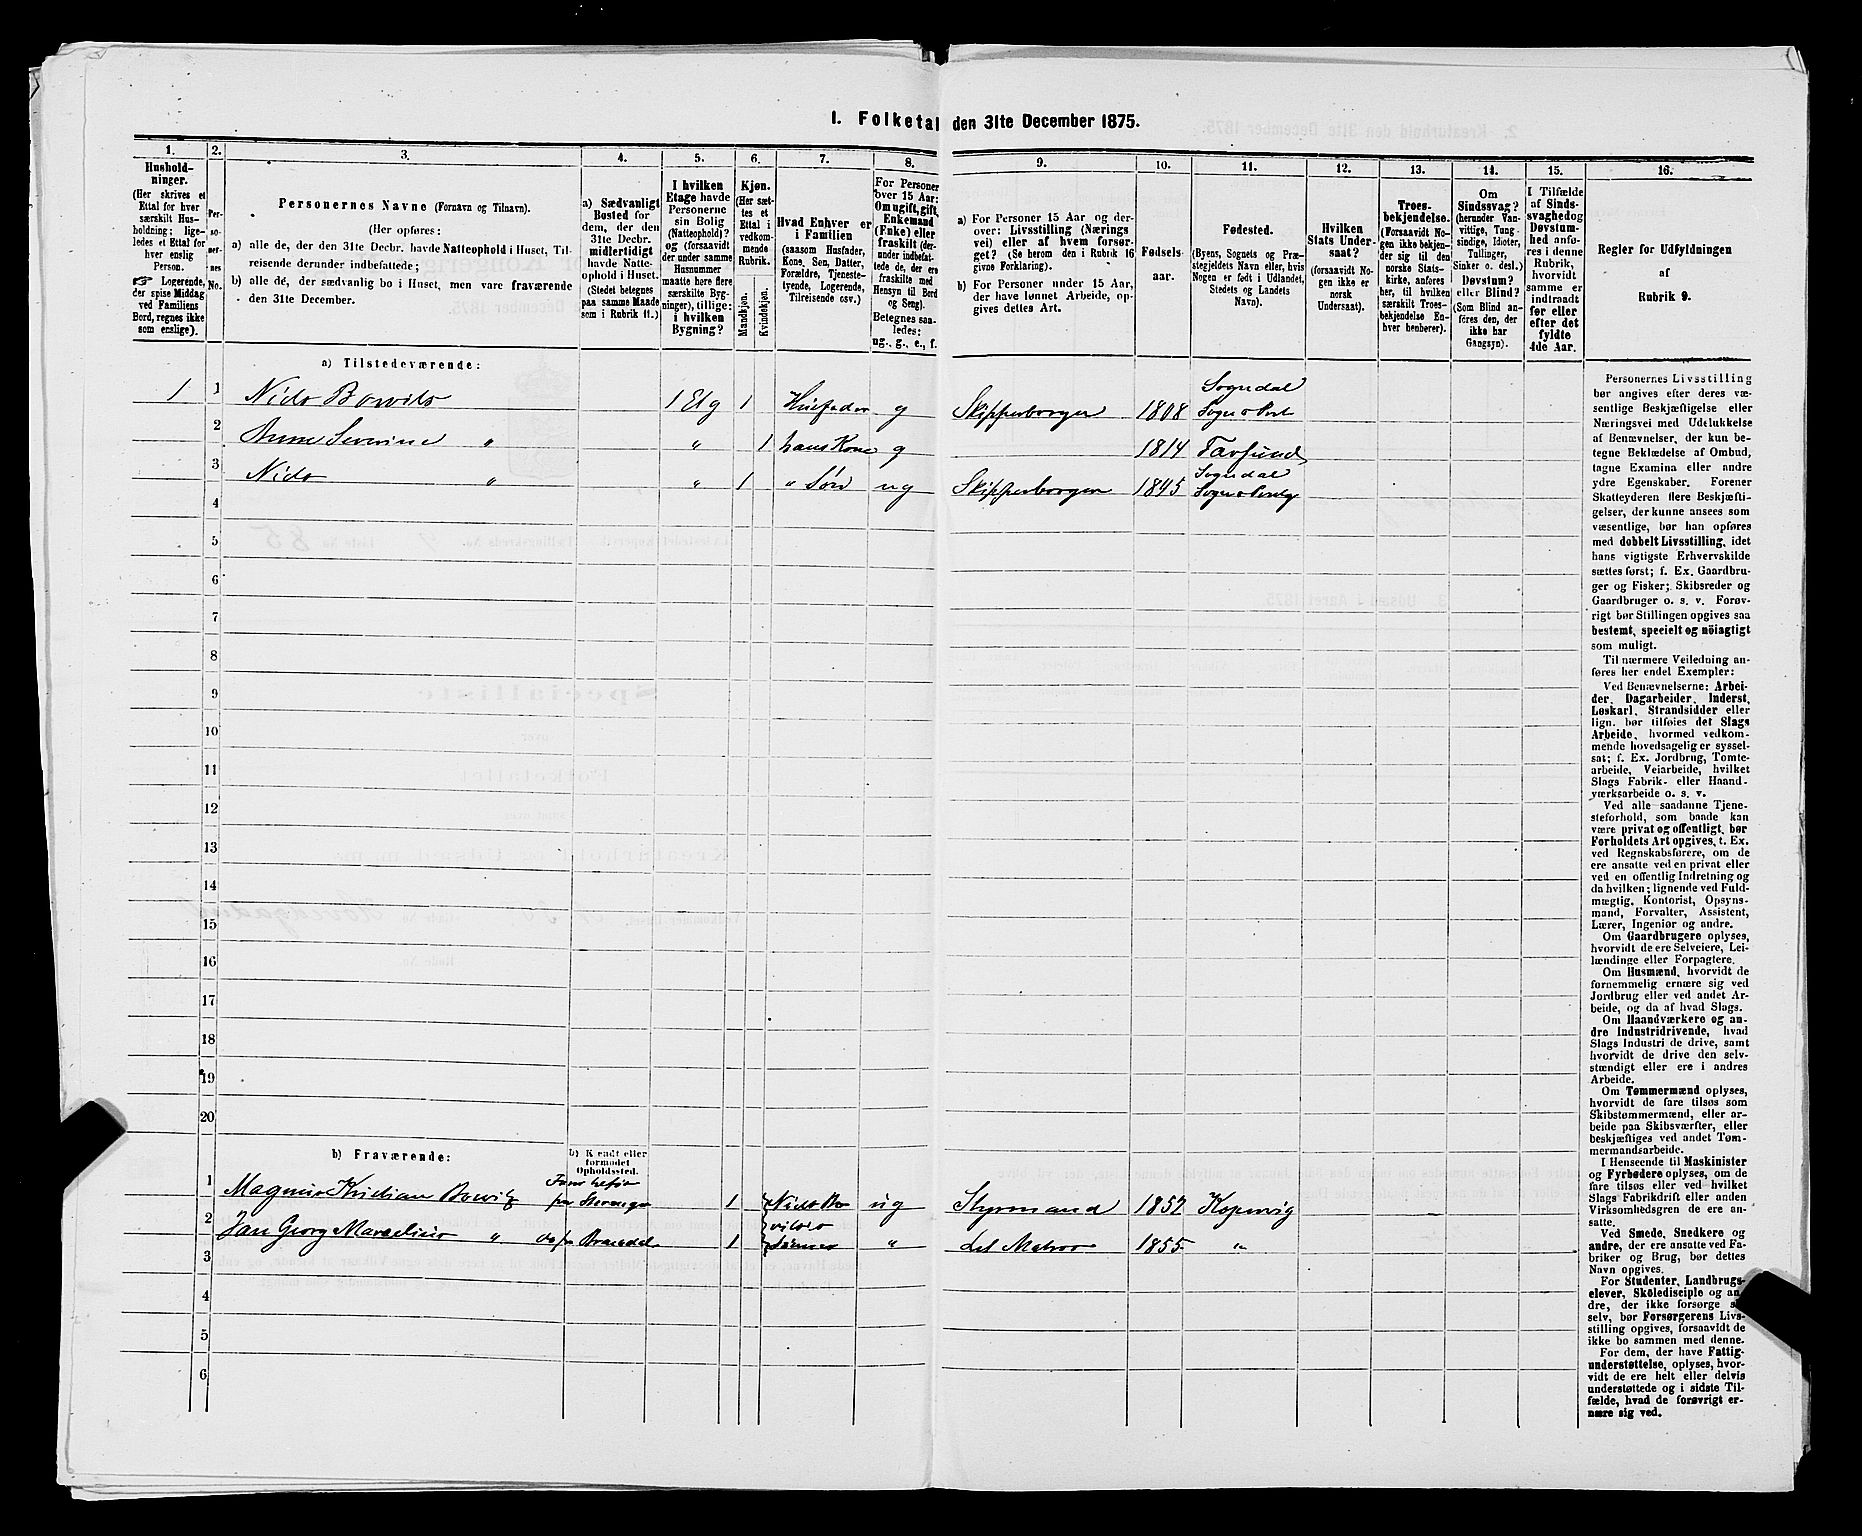 1. Folketal den 31te December 1875.
1. 2. 3. 4. 5. 6. 7. 8. 9. 10. 11. 12. 13. 14. 15. 16.
Hushold-
ninger.
(Her skrives et
Ettal for hver
særskilt Hus-
holdning; lige-
ledes et Ettal for
hver enslig
Person.
☞ Logerende,
der spise Middag
ved Familiens
Bord, regnes ikke
som enslige).
Per-
so-
ner-
nes
No.
Personernes Navne (Fornavn og Tilnavn).
(Her opføres:
a) alle de, der den 31te Decbr. havde Natteophold i Huset, Til-
reisende derunder indbefattede;
b) alle de, der sædvanlig bo i Huset, men vare fraværende
den 31te December.
a) Sædvanligt
Bosted for
dem, der den
31te Decbr.
midlertidigt
havde Natte-
ophold i Huset.
(Stedet betegnes
paa samme Maade
som i Rubrik 11.)
I hvilken
Etage havde
Personerne
sin Bolig
(Natteophold)?
og (forsaavidt
der under samme
Husnummer
maatte høre flere
særskilte Byg-
ninger), tillige:
i hvilken
Bygning?
Kjøn.
(Her sæt-
tes et
Ettal i
vedkom-
mende
Rubrik.
Mandkjøn.
Kvindekjøn.
Hvad Enhver er
i Familien
(saasom Husfader,
Kone, Søn, Datter,
Forældre, Tjeneste-
tyende, Logerende,
Tilreisende osv.)
For Personer
over 15 Aar:
Om ugift, gift,
Enkemand
(Enke) eller
fraskilt (der-
under indbefat-
tede de, der ere
fraskilte med
Hensyn til Bord
og Seng).
Betegnes saa-
ledes:
ug., g., e., f.
a) For Personer 15 Aar og der-
over: Livsstilling (Nærings
vei) eller af hvem forsør-
get? (Se herom den i Rubrik 16
givne Forklaring).
b) For Personer under 15 Aar,
der have lønnet Arbeide, op-
gives dettes Art.
Fødsels-
aar.
Fødested.
(Byens, Sognets og Præ-
stegjeldets Navn eller, hvis
Nogen er født i Udlandet,
Stedets og Landets
Navn).
Hvilken
Stats Under-
saat?
(forsaavidt No-
gen ikke er
norsk
Undersaat).
Troes-
bekjendelse.
(Forsaavidt No-
gen ikke bekjen-
der sig til den
norske Stats-
kirke, anføres
her, til hvilken
særskilt Troes-
bekjendelse En-
hver henhører).
Om
Sindssvag?
(herunder Van-
vittige, Tung-
sindige, Idioter,
Tullinger,
Sinker o. desl.)
Døvstum?
eller Blind?
(Som Blind an-
føres den, der
ikke har
Gangsyn).
I Tilfælde
af Sinds-
svaghed og
Døvstum-
hed anfø-
res i denne
Rubrik,
hvorvidt
samme er
indtraadt
før eller
efter det
fyldte
4de Aar.
Regler for Udfyldningen
af
Rubrik 9.
a) Tilstedeværende:
1 1 Nids Bowids 1 Etg 1 Husfader g Skipperborger 1808 Sogndal
Sogn o Prst
2 Anne Severine " " 1 hans Kone g 1814 Farsund
3 Nids " " 1 " Søn ug Skipperborger 1845 Sogndal
Sogn o Prstg
4
5
6
7
8
9
10
11
12
13
14
15
16
17
18
19
20
b) Fraværende:
b) Kjendt eller
formodet
Opholdssted.
1 Magnus Kristian Bowitz paa Stavanger 1 ug Styrmand 1852 Kopervig
2 Jan Georg Marselius " Sønner 1 " Let Matros 1855 "
3
4
5
6
Personernes Livsstilling
bør angives efter deres væ-
sentlige Beskjæftigelse eller
Næringsvei med Udelukkelse
af Benævnelser, der kun be-
tegne Beklædelse af Ombud,
tagne Examina eller andre
ydre Egenskaber. Forener
Skatteyderen flere Beskjæfti-
gelser, der kunne ansees som
væsentlige, bør han opføres
med dobbelt Livsstilling, idet
hans vigtigste Erhvervskilde
sættes først; f. Ex. Gaardbru-
ger og Fisker; Skibsreder og
Gaardbruger o. s. v. Forøv-
rigt bør Stillingen opgives saa
bestemt, specielt og nöiagtigt
som muligt.
Til nærmere Veiledning an-
føres her endel Exempler:
Ved Benævnelserne: Arbei-
der, Dagarbeider, Inderst,
Løskarl, Strandsidder eller
lign. bør tilføies det Slags
Arbeide, hvormed vedkom-
mende hovedsagelig er syssel-
sat; f. Ex. Jordbrug, Tomte-
arbeide, Veiarbeide, hvilket
Slags Fabrik- eller Haand-
værksarbeide o. s. v.
Ved alle saadanne Tjene-
steforhold, som baade kan
være privat og offentligt, bør
Forholdets Art opgives, t. Ex.
ved Regnskabsførere, om de
ere ansatte ved en privat eller
ved en offentlig Indretning og
da hvilken; lignende ved Fuld-
mægtig, Kontorist, Opsyns-
mand, Forvalter, Assistent,
Lærer, Ingeniør og andre.
Om Gaardbrugere oplyses,
hvorvidt de ere Selveiere, Lei-
lændinge eller Forpagtere.
Om Husmænd, hvorvidt de
fornemmelig ernære sig ved
Jordbrug eller ved andet Ar-
beide, og da af hvad Slags.
Om Haandværkere og an-
dre Industridrivende, hvad
Slags Industri de drive, samt
hvorvidt de drive den selv-
stændigt eller ere i andres
Arbeide.
Om Tømmermænd oplyses,
hvorvidt de fare tilsøs som
Skibstømmermænd, eller ar-
beide paa Skibsværfter, eller
beskjæftiges ved andet Tøm-
mermandsarbeide.
I Henseende til Maskinister
og Fyrbødere oplyses, om de
fare tilsøs eller ved hvilket
Slags Fabrikdrift eller anden
Virksomhedsgren de ere an-
satte.
Ved Smede, Snedkere og
andre, der ere ansatte ved Fa-
briker og Brug, bør dettes
Navn opgives.
For Studenter, Landbrugs-
elever, Skoledisciple og an-
dre, der ikke forsørge sig
selv, bør Forsørgerens Livs-
stilling opgives, forsaavidt de
ikke bo sammen med denne.
For dem, der have Fattig-
understøttelse, oplyses, hvor-
vidt de ere helt eller delvis
understøttede og i sidste Til-
fælde, hvad de forøvrigt er-
nære sig ved.